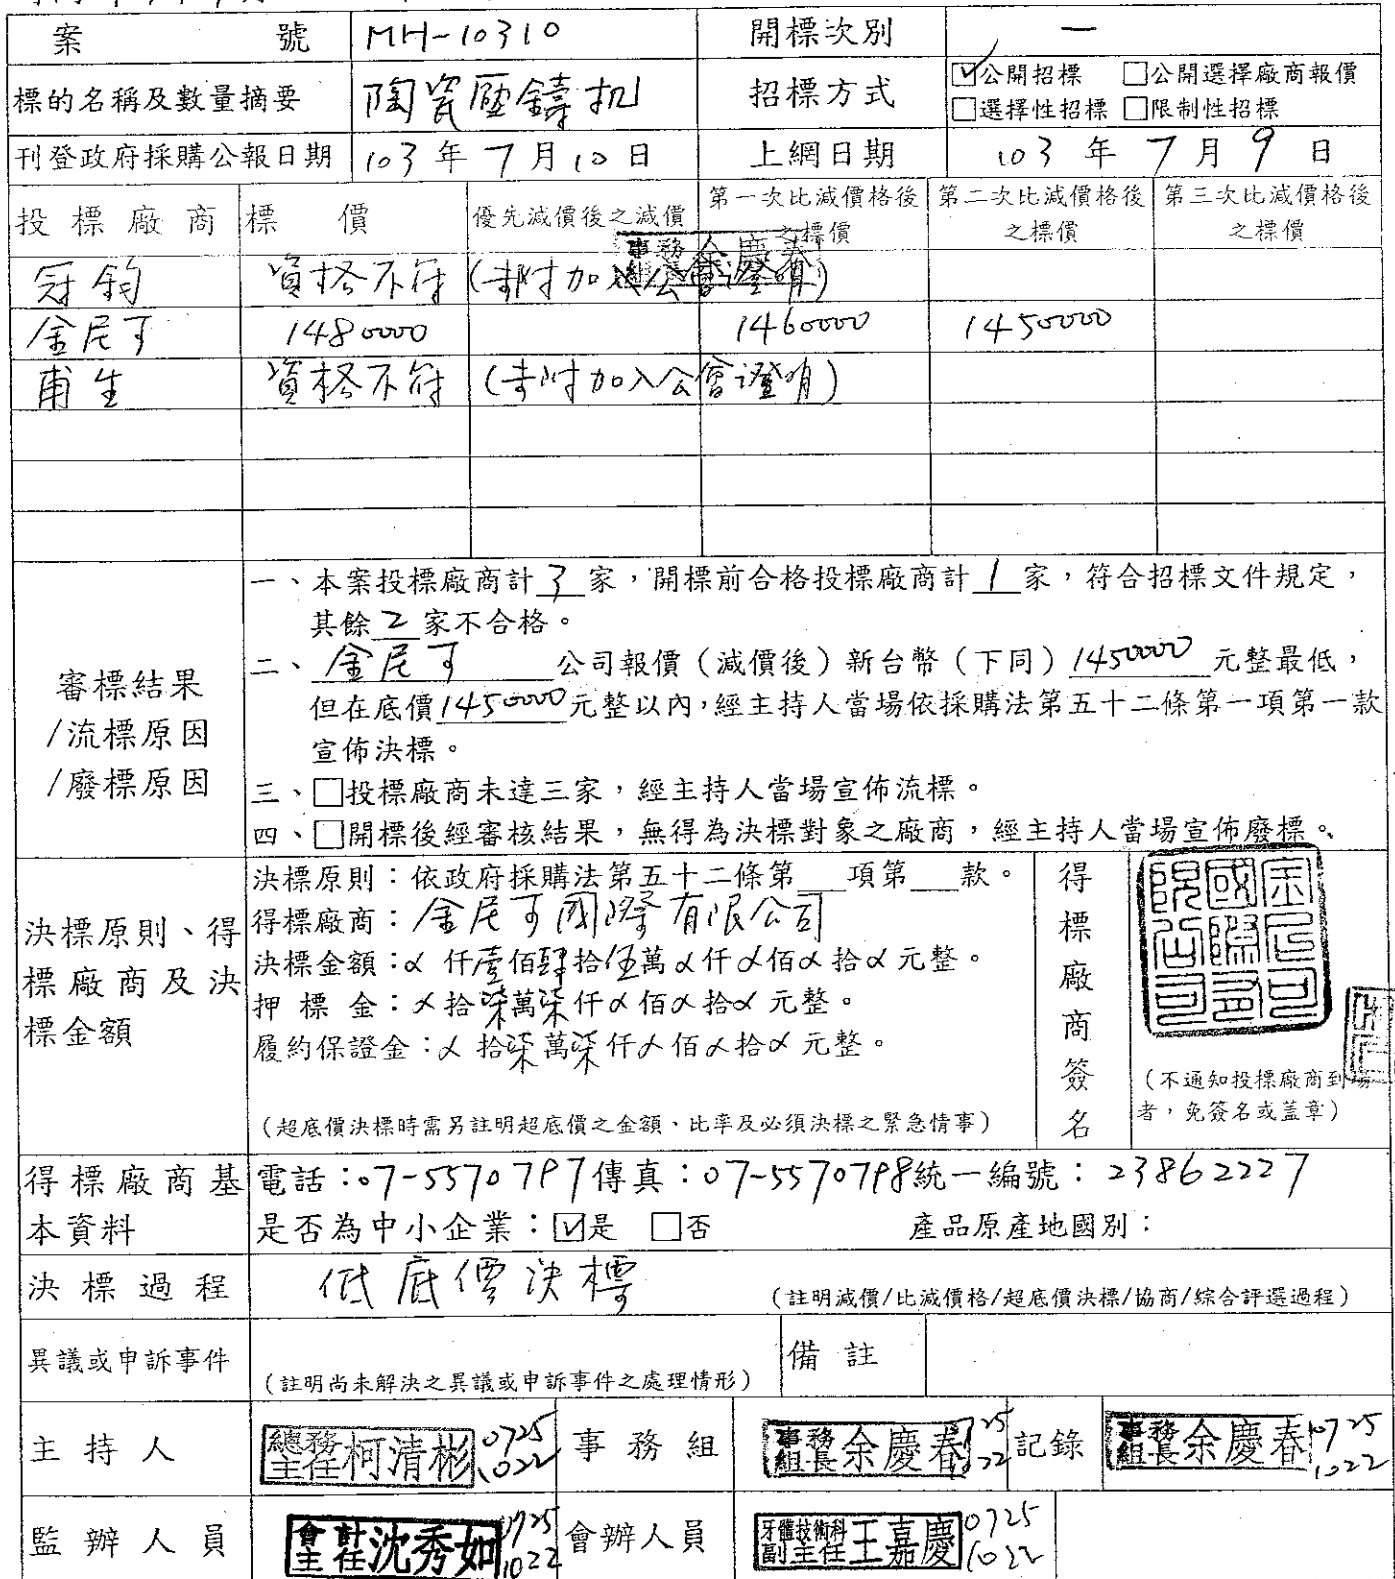 案 號 MH-10310 開標次別 一
標的名稱及數量摘要 陶瓷壓鑄机 招標方式 ☑公開招標 □公開選擇廠商報價
□選擇性招標 □限制性招標
刊登政府採購公報日期 103年7月10日 上網日期 103年7月9日
投標廠商 標價 優先減價後之減價 第一次比減價格後之標價 第二次比減價格後之標價 第三次比減價格後之標價
事務組長余慶春
冠鈞 資格不符 (未附加入公會證明)
金尼可 1480000 1460000 1450000
甫生 資格不符 (未附加入公會證明)
審標結果/流標原因/廢標原因
一、本案投標廠商計3家,開標前合格投標廠商計1家,符合招標文件規定,
其餘2家不合格。
二、金尼可公司報價(減價後)新台幣(下同)1450000元整最低,
但在底價1450000元整以內,經主持人當場依採購法第五十二條第一項第一款
宣佈決標。
三、□投標廠商未達三家,經主持人當場宣佈流標。
四、□開標後經審核結果,無得為決標對象之廠商,經主持人當場宣佈廢標。
決標原則、得標廠商及決標金額
決標原則:依政府採購法第五十二條第___項第___款。
得標廠商:金尼可國際有限公司
決標金額:X仟壹佰肆拾伍萬X仟X佰X拾X元整。
押標金:X拾柒萬柒仟X佰X拾X元整。
履約保證金:X拾柒萬柒仟X佰X拾X元整。
(超底價決標時需另註明超底價之金額、比率及必須決標之緊急情事)
得標廠商簽名
金尼可國際有限公司
(不通知投標廠商到場
者,免簽名或蓋章)
得標廠商基本資料
電話:07-5570797傳真:07-5570798統一編號:23862227
是否為中小企業:☑是 □否 產品原產地國別:
決標過程 低底價決標 (註明減價/比減價格/超底價決標/協商/綜合評選過程)
異議或申訴事件 (註明尚未解決之異議或申訴事件之處理情形) 備註
主持人 總務主任柯清彬 0725 1022 事務組 事務組長余慶春 0725 1022 記錄 事務組長余慶春 0725 1022
監辦人員 會計主任沈秀如 0725 1022 會辦人員 牙體技術科副主任王嘉慶 0725 1022